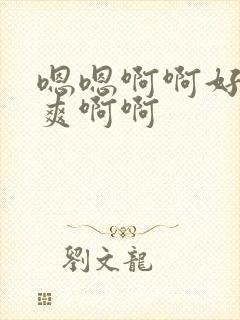 嗯嗯啊啊好
爽啊啊
劉文龍